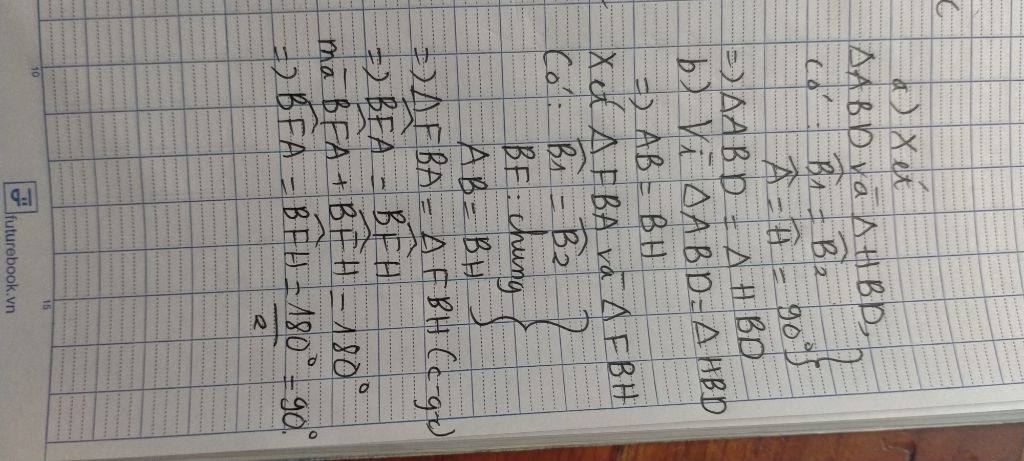 a) Xét
ΔABD và ΔHBD,
có: B̂1 = B̂2
Â = Ĥ = 90° }
=> ΔABD = ΔHBD
b) Vì ΔABD = ΔHBD
=> AB = BH
Xét ΔFBA và ΔFBH
Có: B̂1 = B̂2
BF: chung }
AB = BH
=> ΔFBA = ΔFBH (c-gc)
=> BF̂A = BF̂H
mà BF̂A + BF̂H = 180°
=> BF̂A = BF̂H = 180°/2 = 90°.
futurebook.vn
10
15